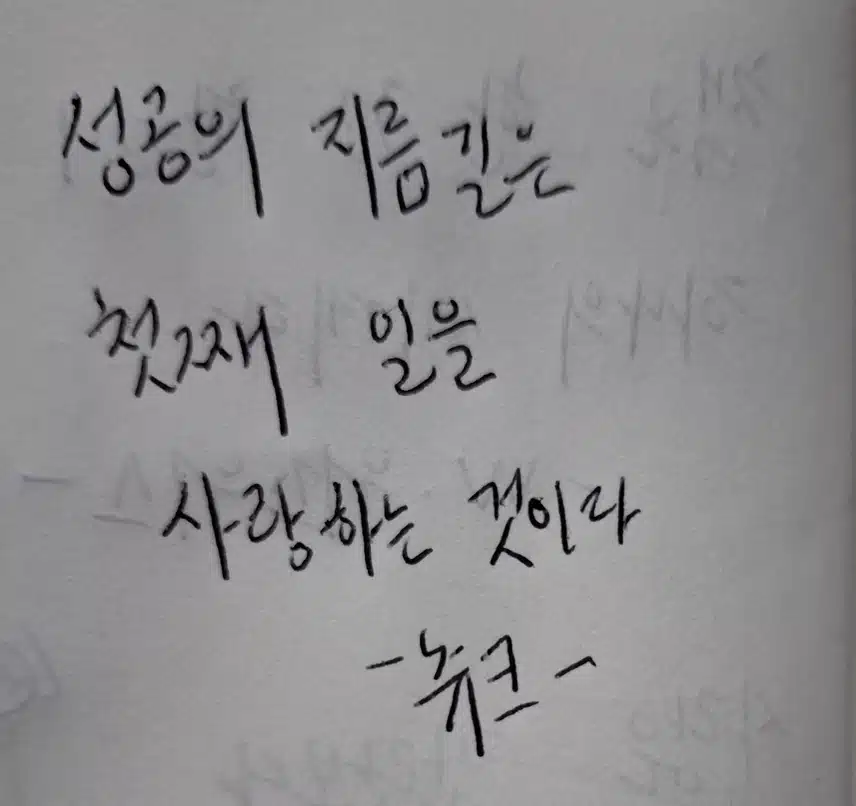 성공의 지름길은
첫째 일을
사랑하는 것이라
-뉴크-